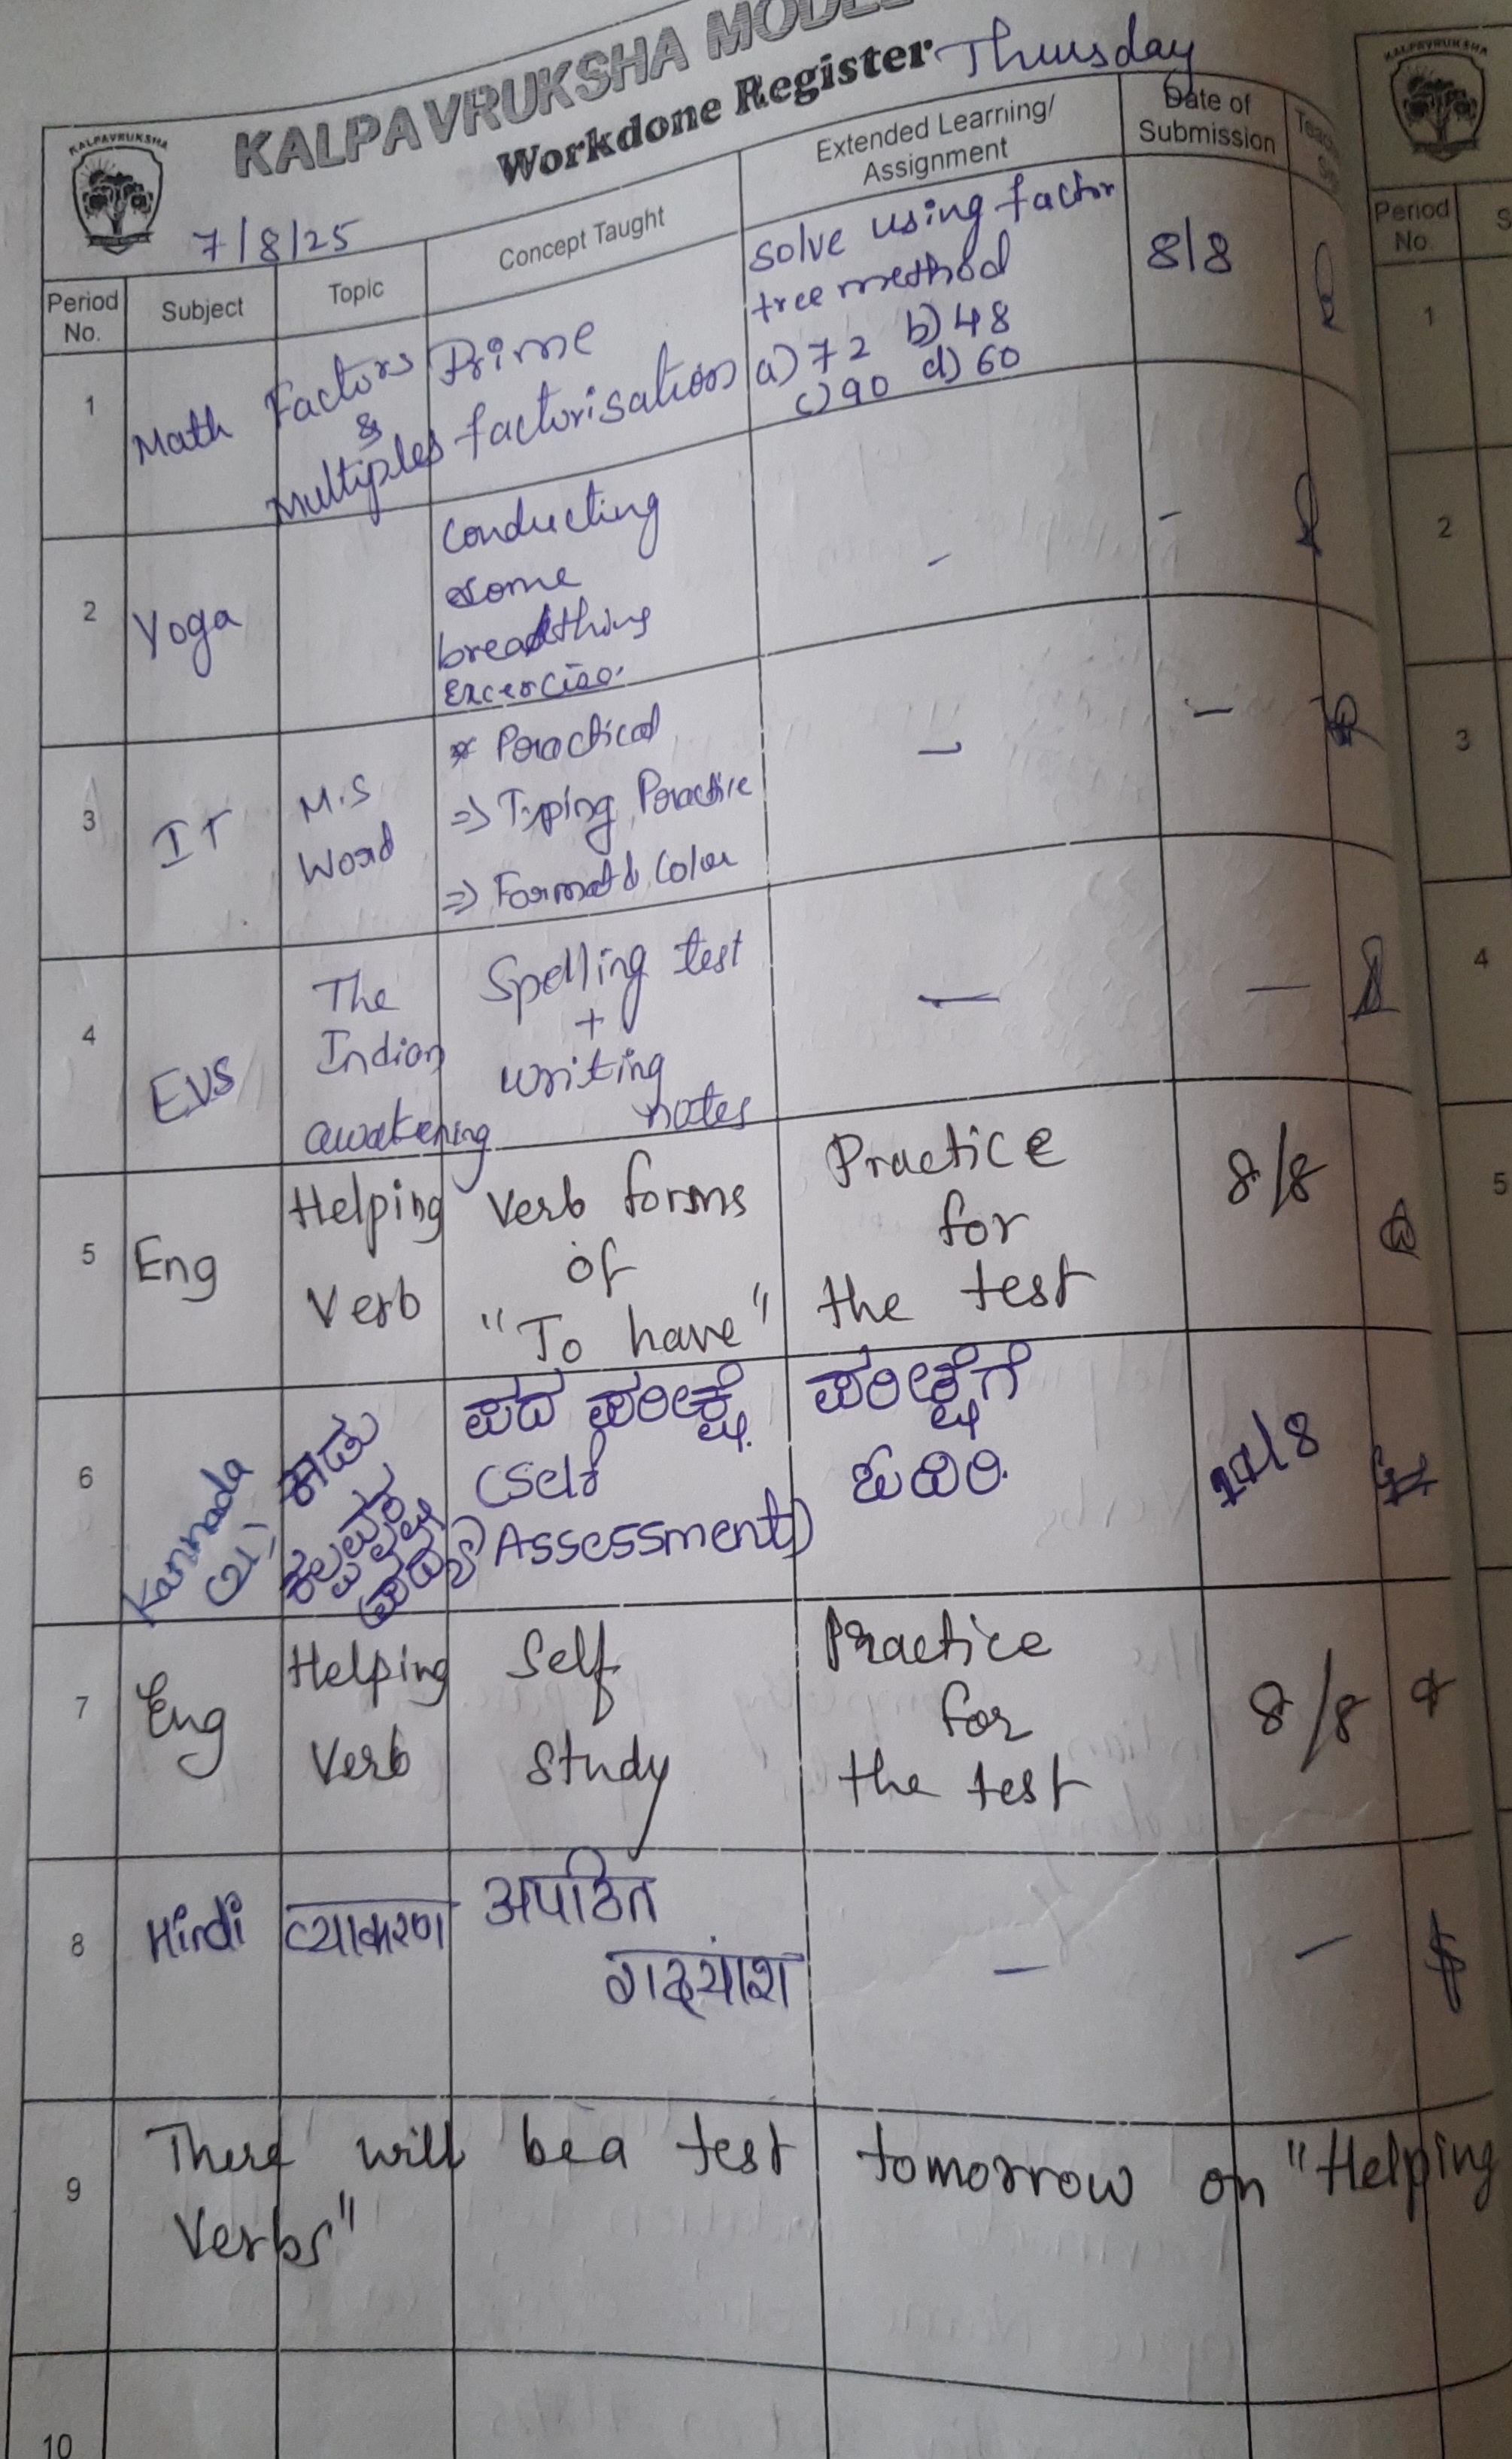 KALPAVRUKSHA MODEL
Workdone Register Thursday
KALPAVRUKSHA
7/8/25
Period No. Subject Topic Concept Taught Extended Learning/ Assignment Date of Submission
1 Math Factors & Multiples Prime factorisation solve using factor tree method a) 72 b) 48 c) 90 d) 60 8/8
2 Yoga conducting some breadthing Excercise. - -
3 IT M.S Word * Practical => Typing Practice => Format & Color - -
4 EVS The Indian awakening Spelling test + writing notes - -
5 Eng Helping Verb Verb forms of "To have" Practice for the test 8/8
6 Kannada ಪದ ಪರೀಕ್ಷೆ (Self Assessment) ಪರೀಕ್ಷೆಗೆ ತಯಾರಿ
7 Eng Helping Verb Self study Practice for the test 8/8
8 Hindi व्याकरण अपठित गद्यांश - -
9 There will be a test tomorrow on "Helping
Verbs"
10
KALPAVRUKSHA
Period No
1
2
3
4
5